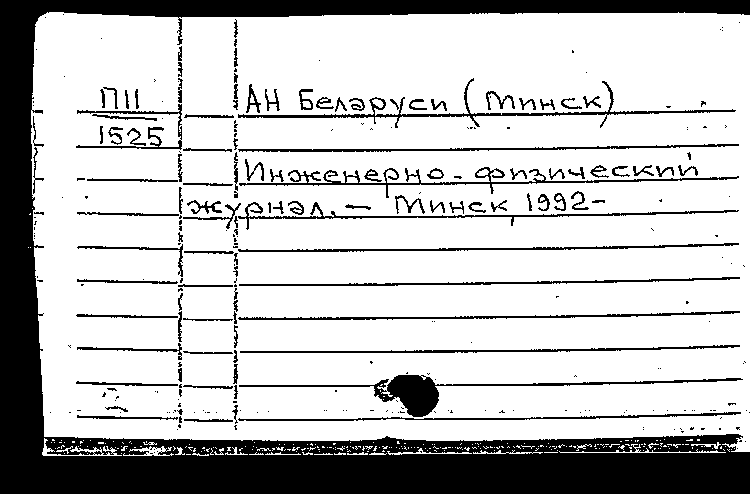 П11
1525
АН Беларуси (Минск)
Инженерно-физический
журнал. — Минск, 1992-